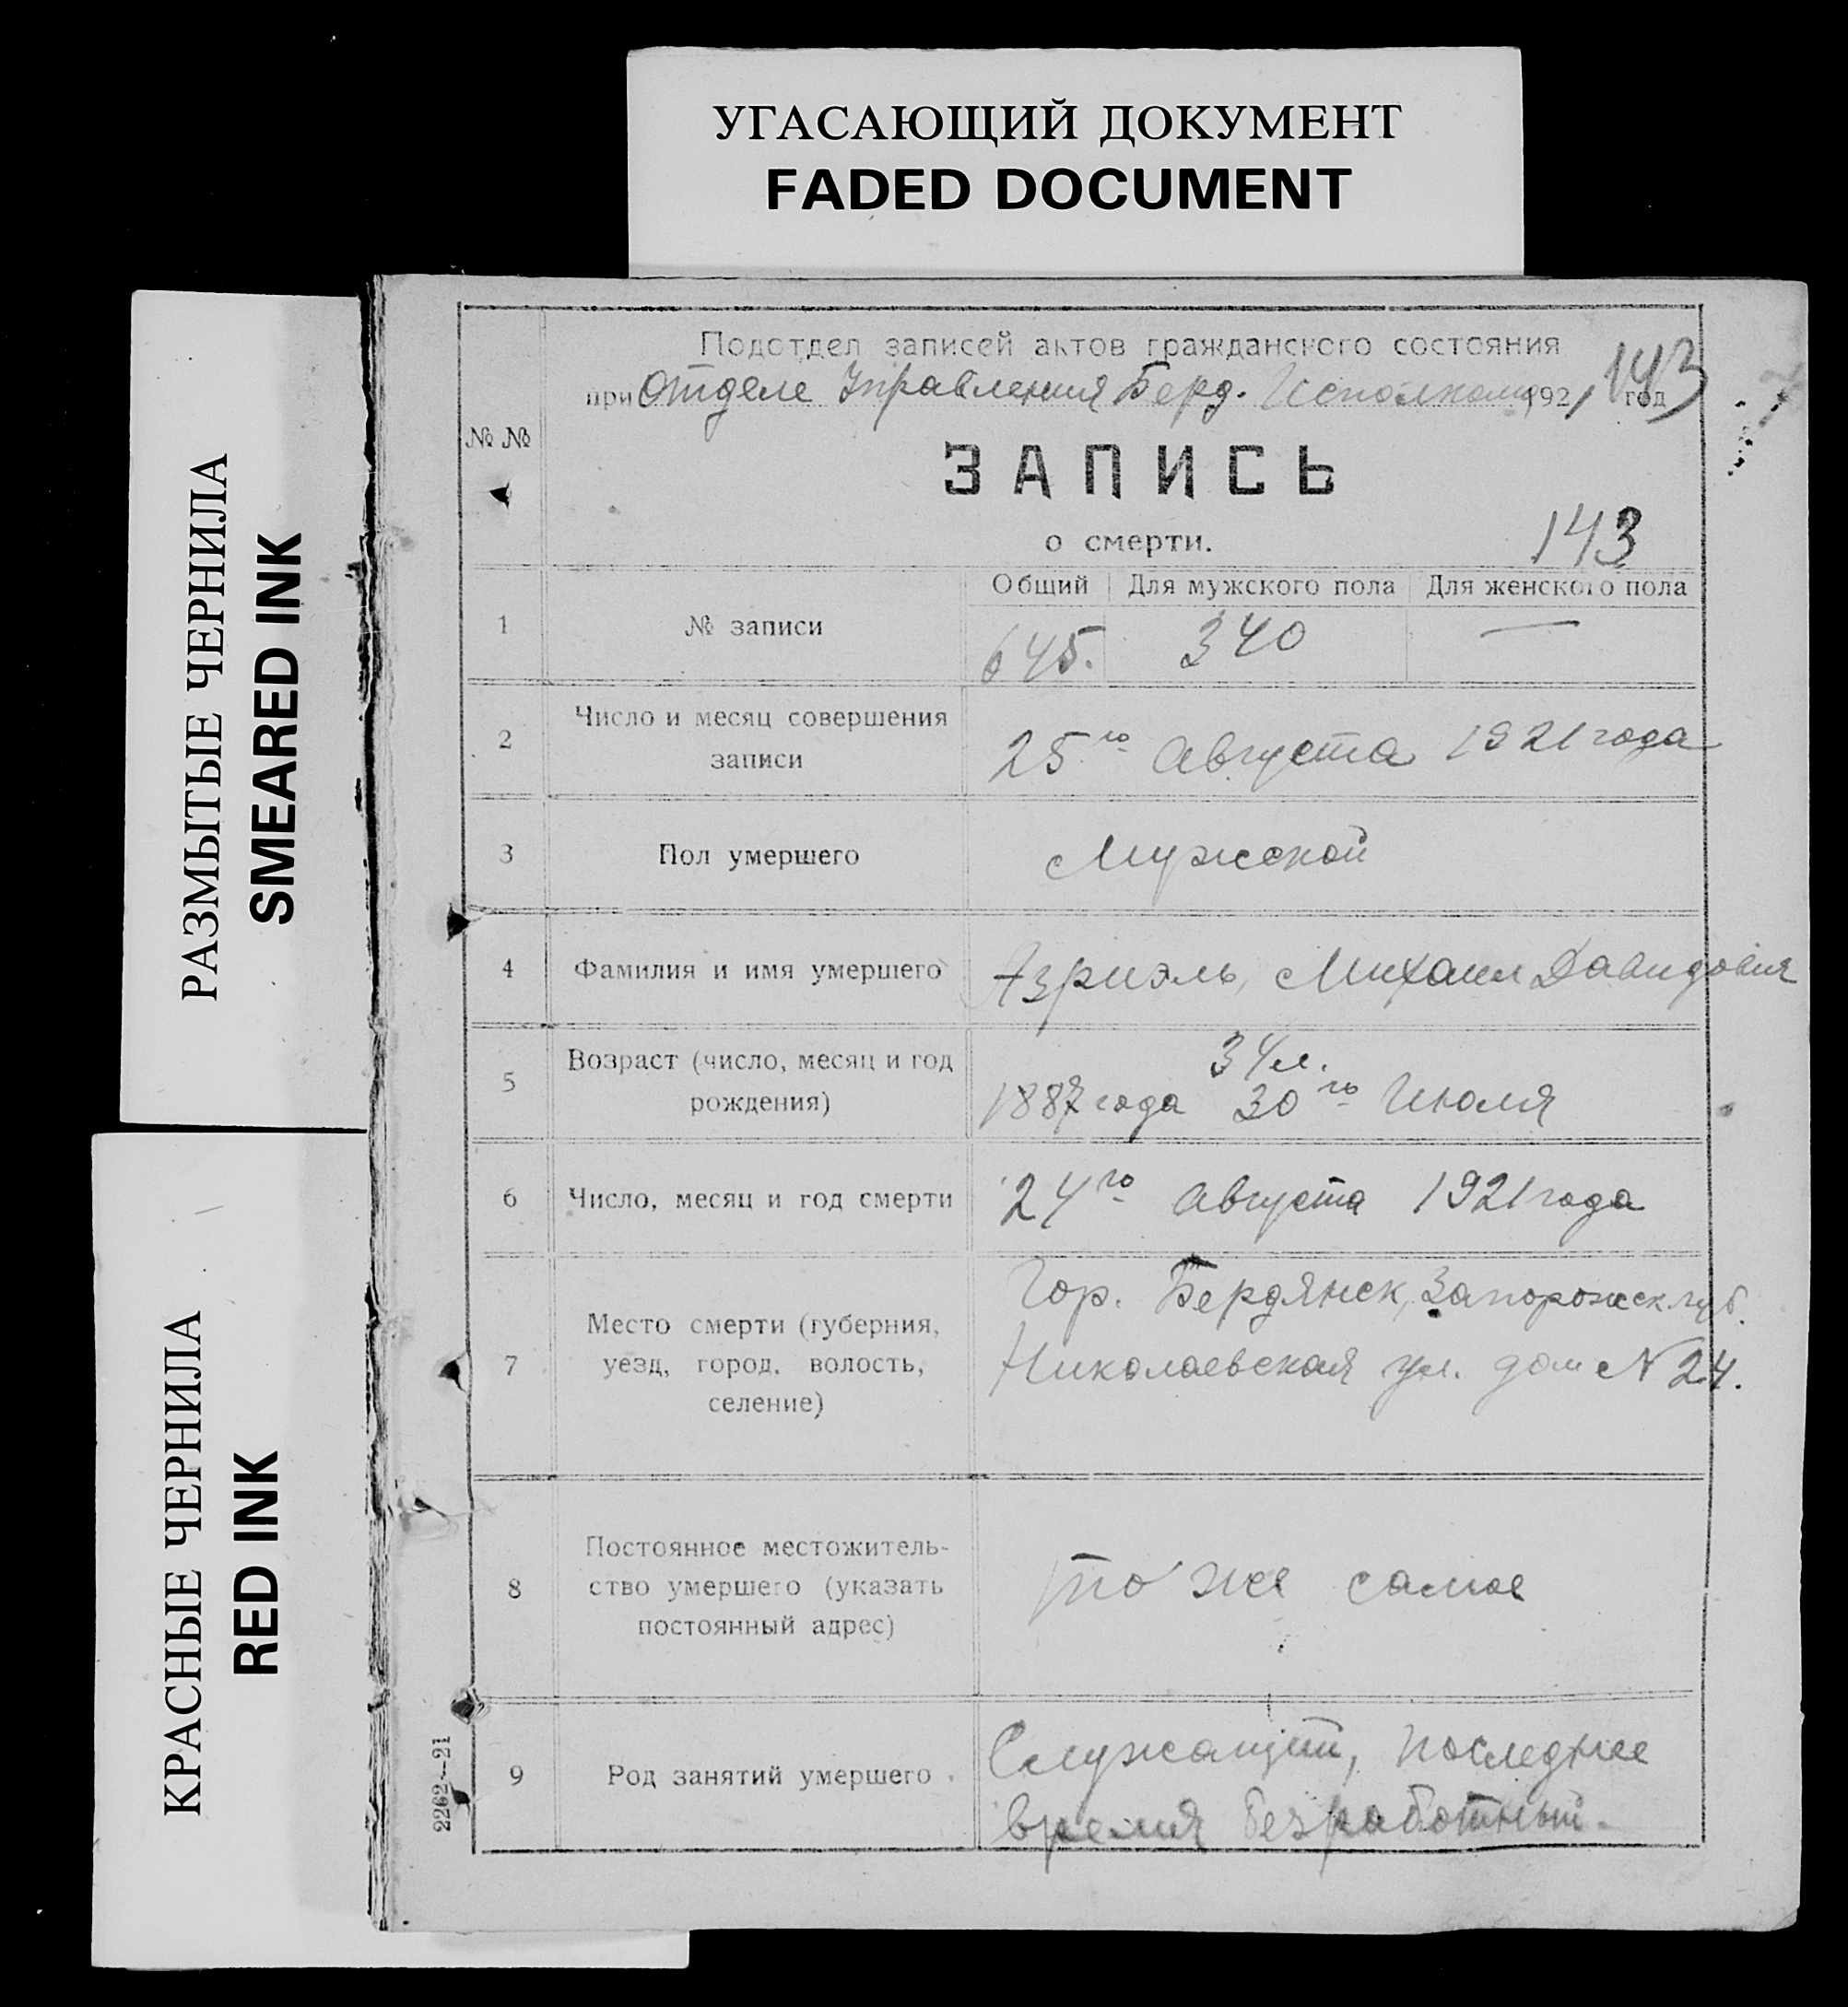 УГАСАЮЩИЙ ДОКУМЕНТ
FADED DOCUMENT
РАЗМЫТЫЕ ЧЕРНИЛА
SMEARED INK
КРАСНЫЕ ЧЕРНИЛА
RED INK
Подотдел записей актов гражданского состояния
при Отделе Управления Берд. Исполкома 1921 год 143
№ №
ЗАПИСЬ
о смерти.
143
Общий Для мужского пола Для женского пола
1 № записи 645. 340 —
2 Число и месяц совершения
записи
25го Августа 1921 года
3 Пол умершего Мужской
4 Фамилия и имя умершего Азриэль, Михаил Давидович
5 Возраст (число, месяц и год
рождения)
34 л.
1887 года 30го Июля
6 Число, месяц и год смерти 24го Августа 1921 года
7 Место смерти (губерния,
уезд, город, волость,
селение)
Гор. Бердянск, Запорожск. губ.
Николаевская ул. дом № 24.
8 Постоянное местожитель-
ство умершего (указать
постоянный адрес)
то же самое
9 Род занятий умершего
Служащий, последнее
время безработный.
2262—21